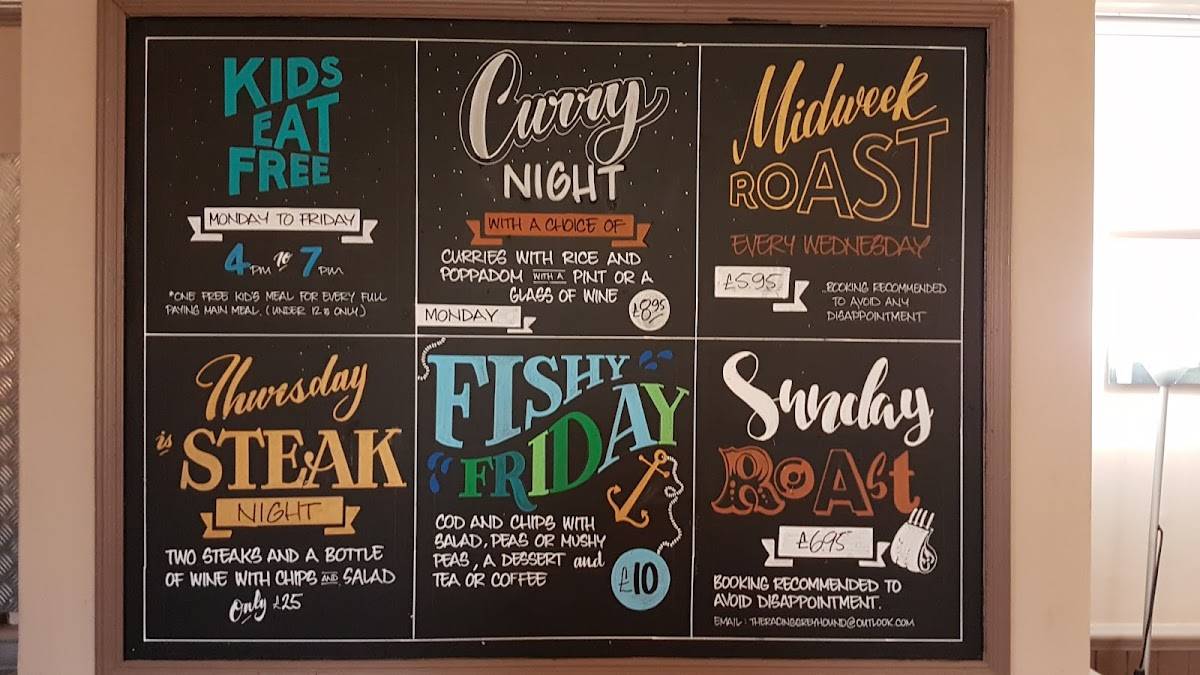 KIDS
EAT
FREE
MONDAY TO FRIDAY
4PM to 7PM
*ONE FREE KID'S MEAL FOR EVERY FULL
PAYING MAIN MEAL. (UNDER 12's ONLY)
Curry
NIGHT
WITH A CHOICE OF
CURRIES WITH RICE AND
POPPADOM WITH A PINT OR A
GLASS OF WINE
£8.95
MONDAY
Midweek
ROAST
EVERY WEDNESDAY
£5.95
..BOOKING RECOMMENDED
TO AVOID ANY
DISAPPOINTMENT
Thursday
is STEAK
NIGHT
TWO STEAKS AND A BOTTLE
OF WINE WITH CHIPS AND SALAD
Only £25
FISHY
FRIDAY
COD AND CHIPS WITH
SALAD, PEAS OR MUSHY
PEAS, A DESSERT and
TEA OR COFFEE
£10
Sunday
ROAst
£6.95
BOOKING RECOMMENDED TO
AVOID DISAPPOINTMENT.
EMAIL: THERACINGGREYHOUND@OUTLOOK.COM